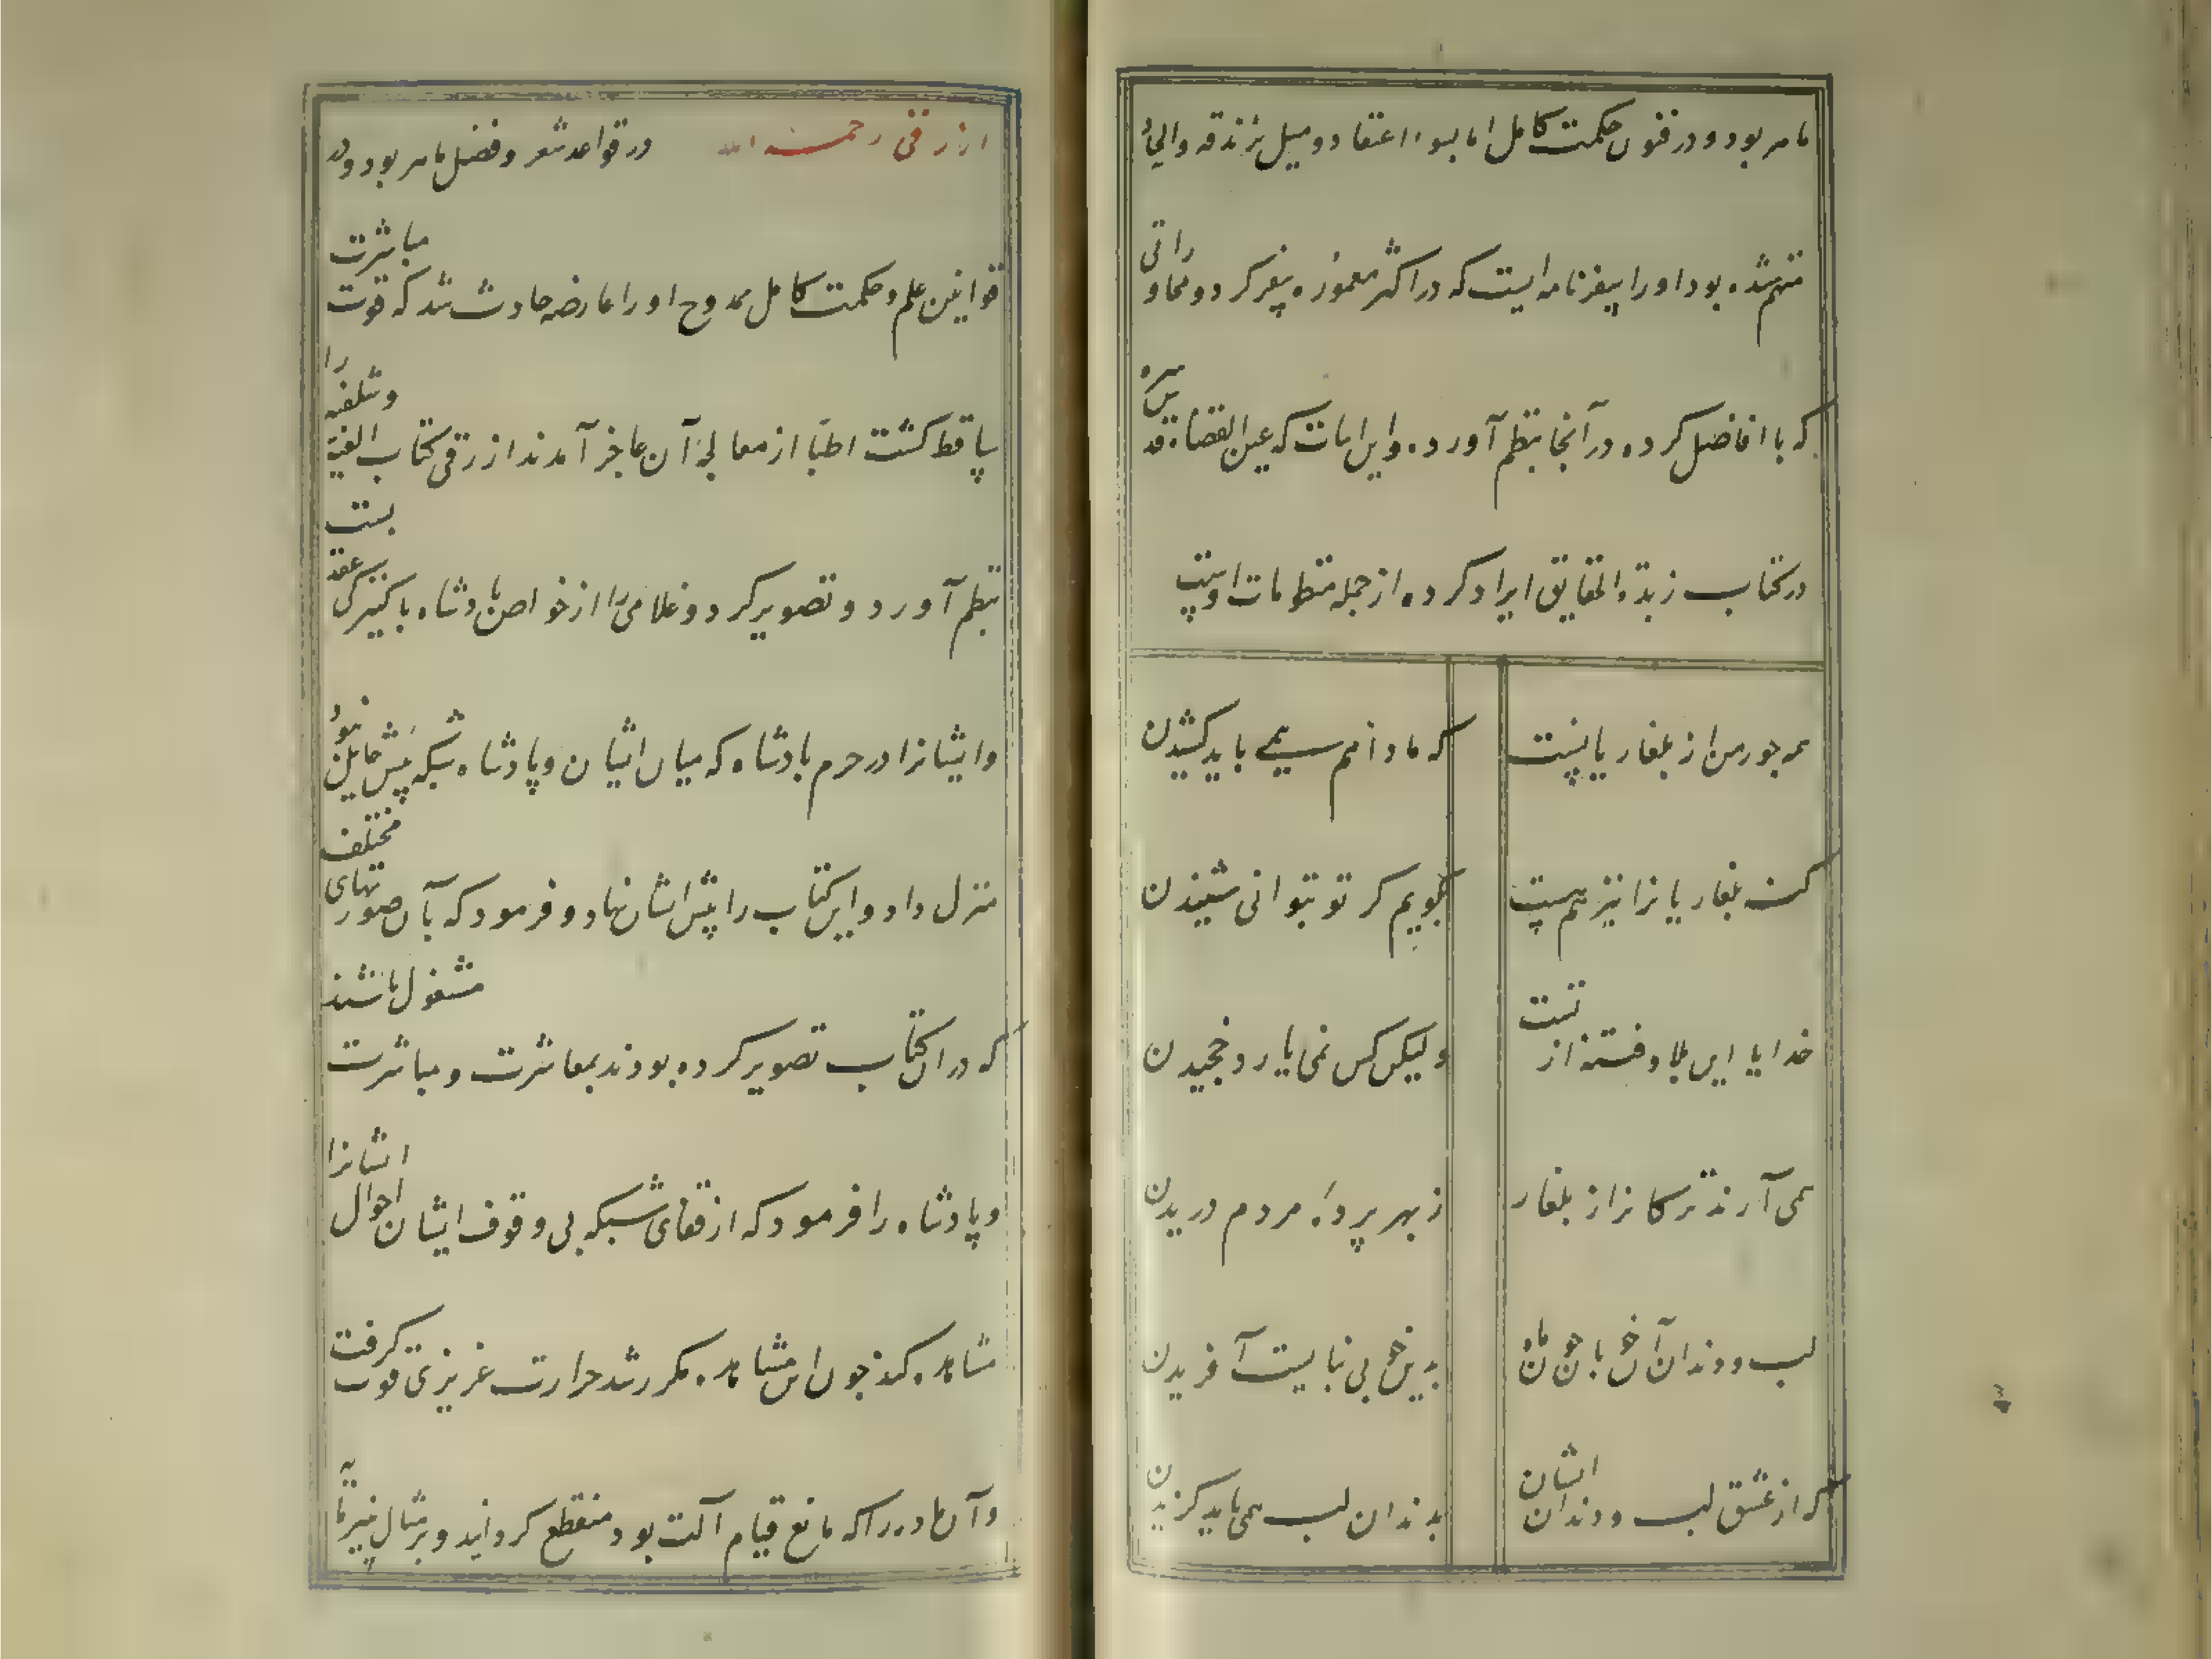 ماهر بود و در فنون حکمت کامل اما بسوء اعتقاد و میل بزندقه و الحاد
متهم شده بود او را سفرنامه ایست که در اکثر معموره سفر کرد و محاوراتی
که با افاضل کرده در آنجا بنظم آورده و این ابیات که عین القضاة قدس سره
در کتاب زبدة الحقایق ایراد کرده از جمله منظومات اوست
همه جور من از بلغاریانست
که مادامم همی باید کشیدن
گنه بلغاریانرا نیز هم نیست
بگویم گر تو بتوانی شنیدن
خدایا این بلا و فتنه از تست
ولیکن کس نمی یارد چخیدن
همی آرند ترکانرا ز بلغار
ز بهر پرده مردم دریدن
لب و دندان آن خوبان چون ماه
بدین خوبی نبایست آفریدن
که از عشق لب و دندان ایشان
بدندان لب همی باید گزیدن
ازرقی رحمه الله در قواعد شعر و فضل ماهر بود و در
قوانین علم و حکمت کامل ممدوح او را عارضه حادث شد که قوت مباشرت
ساقط گشت اطبا از معالجۀ آن عاجز آمدند ازرقی کتاب الفیه و شلفیه را
بنظم آورد و تصویر کرد و غلامی را از خواص پادشاه با کنیزکی عقد بست
و ایشانرا در حرم پادشاه که میان ایشان و پادشاه شبکه بیش حایل نبود
منزل داد و این کتاب را پیش ایشان نهاد و فرمود که بآن صورتهای مختلف
که در ان کتاب تصویر کرده بودند بمعاشرت و مباشرت مشغول باشند
و پادشاه را فرمود که از قفای شبکه بی وقوف ایشان احوال ایشانرا
مشاهده کند چون این مشاهده مکرر شد حرارت غریزی قوت گرفت
و آن ماده را که مانع قیام آلت بود منقطع گردانید و بر مثال